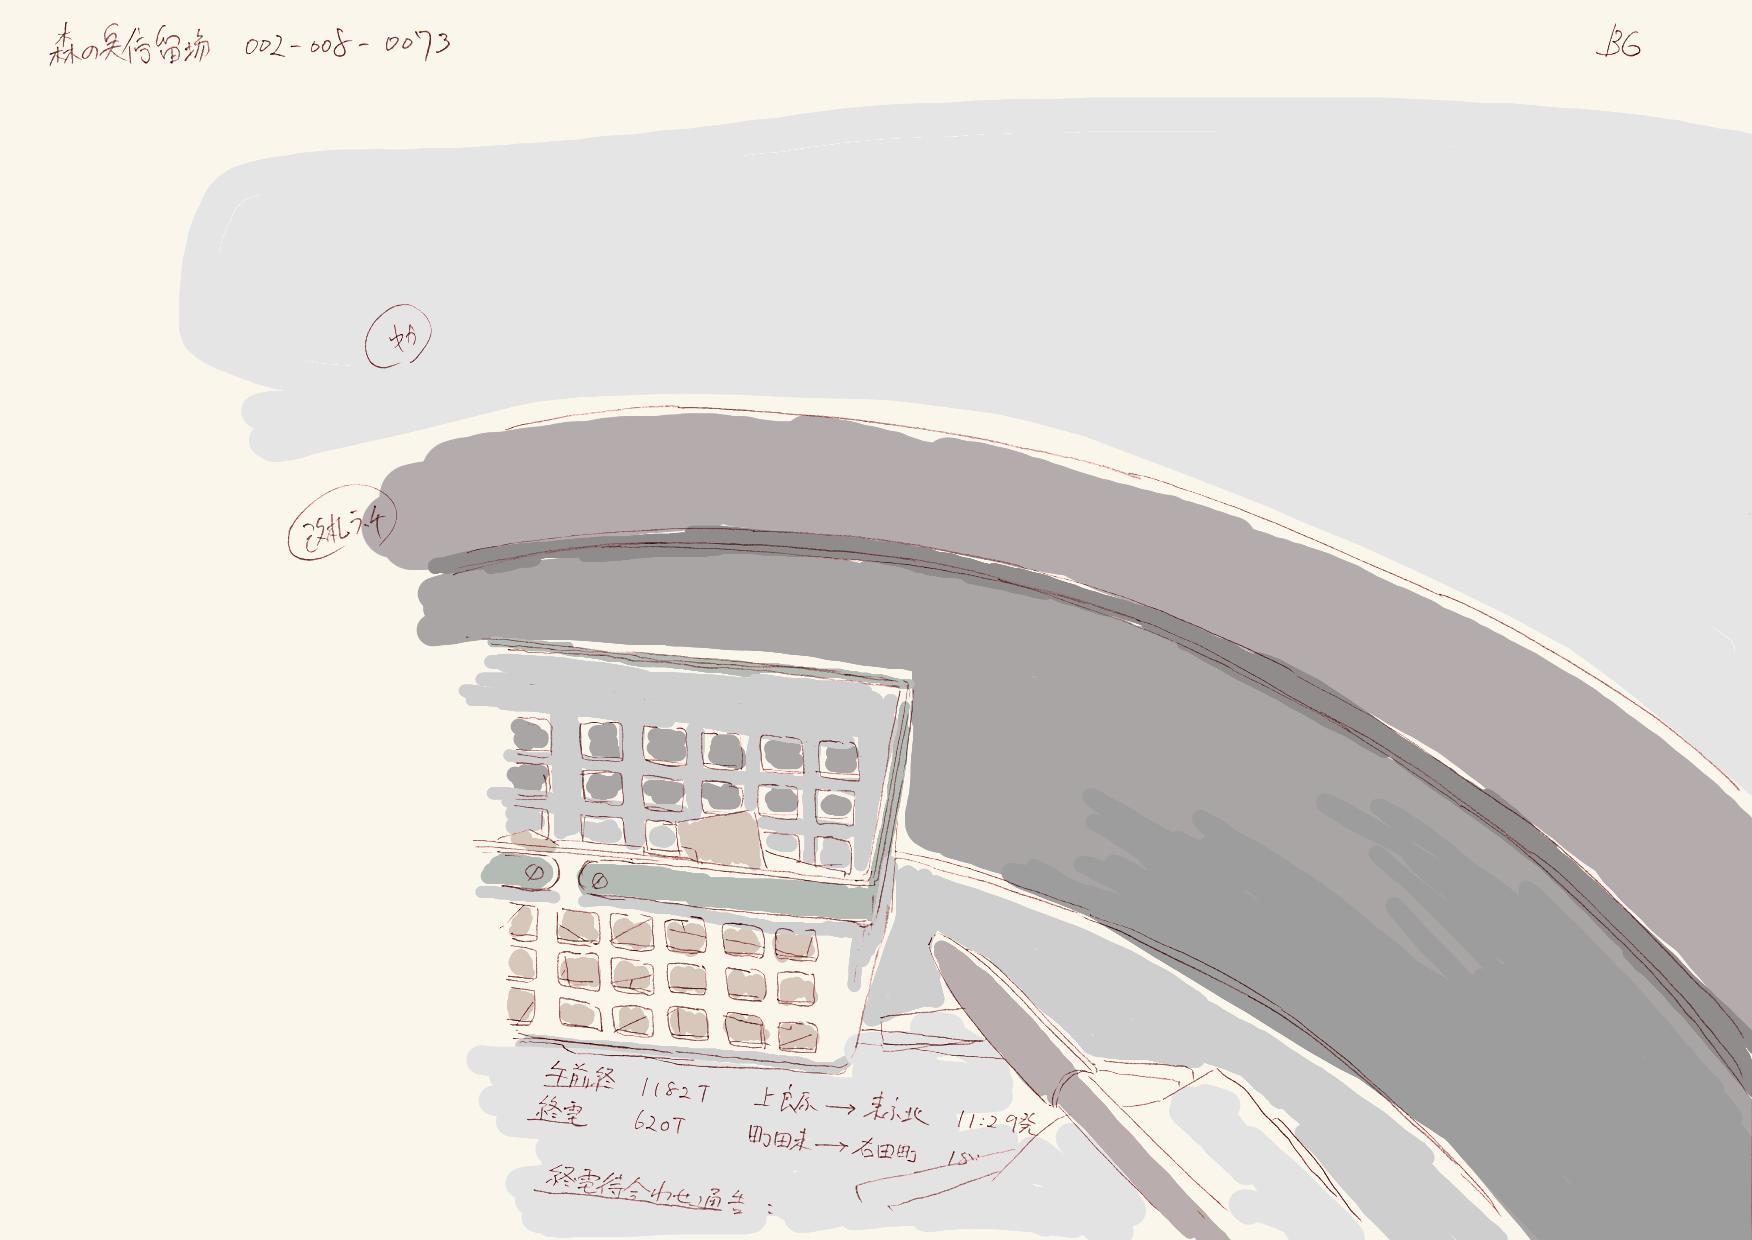 森の奥停留場 002-008-0073
BG
改札ラチ
午前終 1182T 上良原→東京北 11:29発
終電 620T 町田東→右田町
終電待合わせ通告: